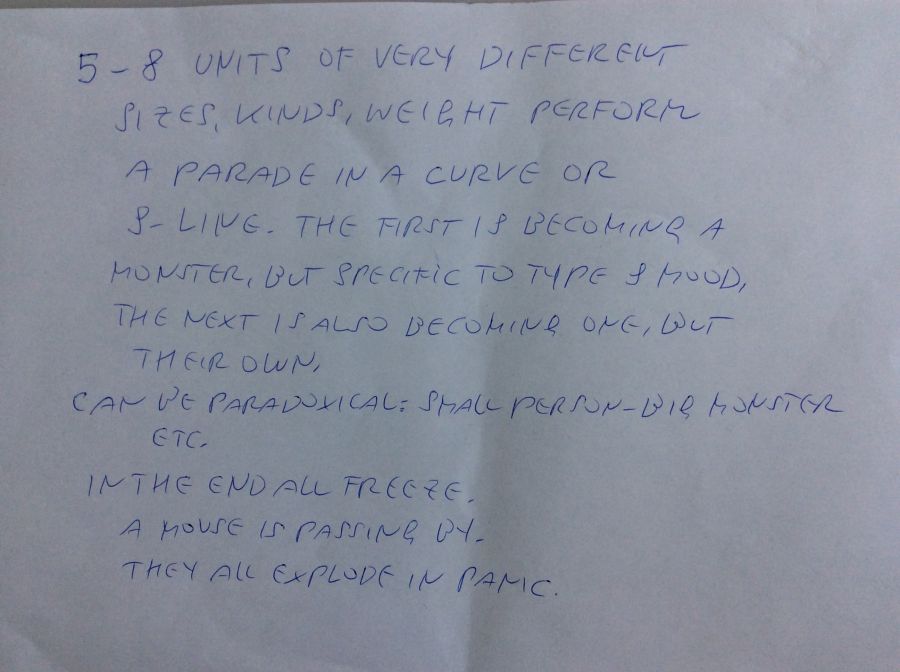 5-8 UNITS OF VERY DIFFERENT
SIZES, KINDS, WEIGHT PERFORM
A PARADE IN A CURVE OR
S-LINE. THE FIRST IS BECOMING A
MONSTER, BUT SPECIFIC TO TYPE & MOOD,
THE NEXT IS ALSO BECOMING ONE, BUT
THEIR OWN,
CAN BE PARADOXICAL: SMALL PERSON-BIG MONSTER
ETC.
IN THE END ALL FREEZE.
A MOUSE IS PASSING BY.
THEY ALL EXPLODE IN PANIC.